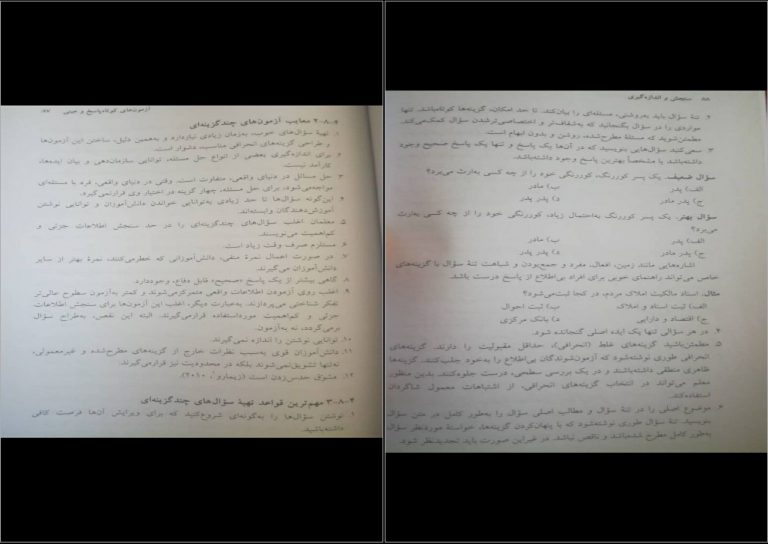 آزمون‌های کوتاه‌پاسخ و عینی ۸۷
۴-۸-۲ معایب آزمون‌های چندگزینه‌ای
۱. تهیهٔ سؤال‌های خوب، به‌زمان زیادی نیازدارد و به‌همین دلیل، ساختن این آزمون‌ها
و طراحی گزینه‌های انحرافی مناسب، دشوار است.
۲. برای اندازه‌گیری بعضی از انواع حل مسئله، توانایی سازمان‌دهی و بیان ایده‌ها،
کارآمد نیست.
۳. حل مسائل در دنیای واقعی، متفاوت است. وقتی در دنیای واقعی، فرد با مسئله‌ای
مواجه‌می‌شود، برای حل مسئله، چهار گزینه در اختیار وی قرارنمی‌گیرد.
۴. این‌گونه سؤال‌ها تا حد زیادی به‌توانایی خواندن دانش‌آموزان و توانایی نوشتن
آموزش‌دهندگان وابسته‌اند.
۵. معلمان اغلب سؤال‌های چندگزینه‌ای را در حد سنجش اطلاعات جزئی و
کم‌اهمیت می‌نویسند.
۶. مستلزم صرف وقت زیاد است.
۷. در صورت اعمال نمرهٔ منفی، دانش‌آموزانی که خطرمی‌کنند، نمرهٔ بهتر از سایر
دانش‌آموزان می‌گیرند.
۸. گاهی بیشتر از یک پاسخ «صحیح» قابل دفاع، وجوددارد.
۹. اغلب روی آزمودن اطلاعات واقعی متمرکزمی‌شوند و کمتر به‌آزمون سطوح عالی‌تر
تفکر شناختی می‌پردازند. به‌عبارت دیگر، اغلب این آزمون‌ها برای سنجش اطلاعات
جزئی و کم‌اهمیت مورداستفاده قرارمی‌گیرند. البته این نقص، به‌طراح سؤال
برمی‌گردد، نه به‌آزمون.
۱۰. توانایی نوشتن را اندازه نمی‌گیرند.
۱۱. دانش‌آموزان قوی به‌سبب نظرات خارج از گزینه‌های مطرح‌شده و غیرمعمولی،
نه‌تنها تشویق‌نمی‌شوند بلکه در محدودیت نیز قرارمی‌گیرند.
۱۲. مشوق حدس‌زدن است (زیمارو، ۲۰۱۰).
۴-۸-۳ مهم‌ترین قواعد تهیهٔ سؤال‌های چندگزینه‌ای
۱. نوشتن سؤال‌ها را به‌گونه‌ای شروع‌کنید که برای ویرایش آن‌ها فرصت کافی
داشته‌باشید.
۸۸ سنجش و اندازه‌گیری
۲. تنهٔ سؤال باید به‌روشنی، مسئله‌ای را بیان‌کند. تا حد امکان، گزینه‌ها کوتاه‌باشد. تنها
مواردی را در سؤال بگنجانید که به‌شفاف‌تر و اختصاصی‌ترشدن سؤال کمک‌می‌کند.
مطمئن‌شوید که مسئلهٔ مطرح‌شده، روشن و بدون ابهام است.
۳. سعی‌کنید سؤال‌هایی بنویسید که در آن‌ها یک پاسخ و تنها یک پاسخ صحیح وجود
داشته‌باشد یا مشخصاً بهترین پاسخ وجود داشته‌باشد.
سؤال ضعیف. یک پسر کوررنگ، کوررنگی خود را از چه کسی به‌ارث می‌برد؟
الف) پدر ب) مادر
ج) پدر مادر د) پدر پدر
سؤال بهتر. یک پسر کوررنگ به‌احتمال زیاد، کوررنگی خود را از چه کسی به‌ارث
می‌برد؟
الف) پدر ب) مادر
ج) پدر مادر د) پدر پدر
اشاره‌هایی مانند زمین، افعال، مفرد و جمع‌بودن و شباهت تنهٔ سؤال با گزینه‌های
خاص می‌تواند راهنمای خوبی برای افراد بی‌اطلاع از پاسخ درست باشد.
مثال. اسناد مالکیت املاک مردم، در کجا ثبت‌می‌شود؟
الف) ثبت اسناد و املاک ب) ثبت احوال
ج) اقتصاد و دارایی د) بانک مرکزی
۴. در هر سؤالی تنها یک ایده اصلی گنجانده شود.
۵. مطمئن‌باشید گزینه‌های غلط (انحرافی)، حداقل مقبولیت را دارند. گزینه‌های
انحرافی طوری نوشته‌شود که آزمون‌شوندگان بی‌اطلاع را به‌خود جلب‌کنند. گزینه‌ها
ظاهری منطقی داشته‌باشند و در یک بررسی سطحی، درست جلوه‌کنند. بدین منظور
معلم می‌تواند در انتخاب گزینه‌های انحرافی، از اشتباهات معمول شاگردان
استفاده‌کند.
۶. موضوع اصلی را در تنهٔ سؤال و مطالب اصلی سؤال را به‌طور کامل در متن سؤال
بنویسید. تنهٔ سؤال طوری نوشته‌شود که با پنهان‌کردن گزینه‌ها، خواستهٔ موردنظر سؤال
به‌طور کامل مطرح شده‌باشد و ناقص نباشد. در غیراین صورت باید تجدیدنظر شود.